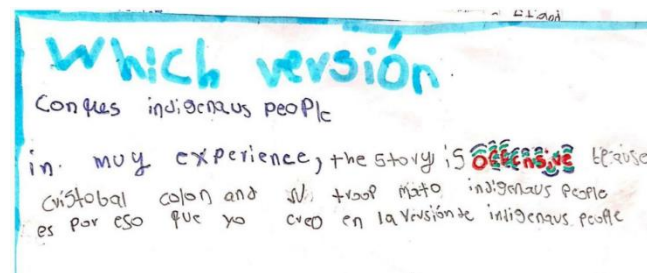 Which versión
Conques indigenaus people
in. muy experience, the story is offensive
cristobal colon and su troop mato indigenaus people
es por eso que yo creo en la versión de indigenaus people